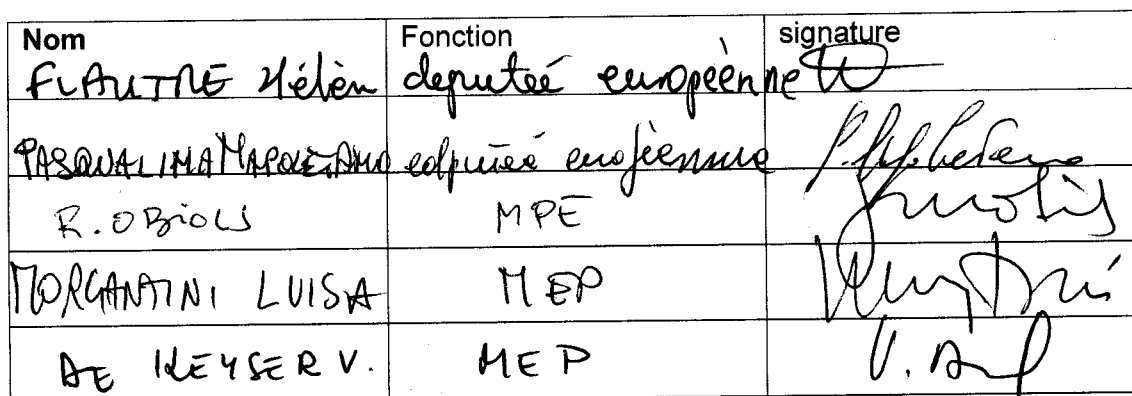 Nom Fonction signature
FLAUTRE Hélèn deputeé européenne
PASQUALINA NAPOLETANO edputeé européenne
R. OBIOLS MPE
MORGANTINI LUISA MEP
DE KEYSER V. MEP